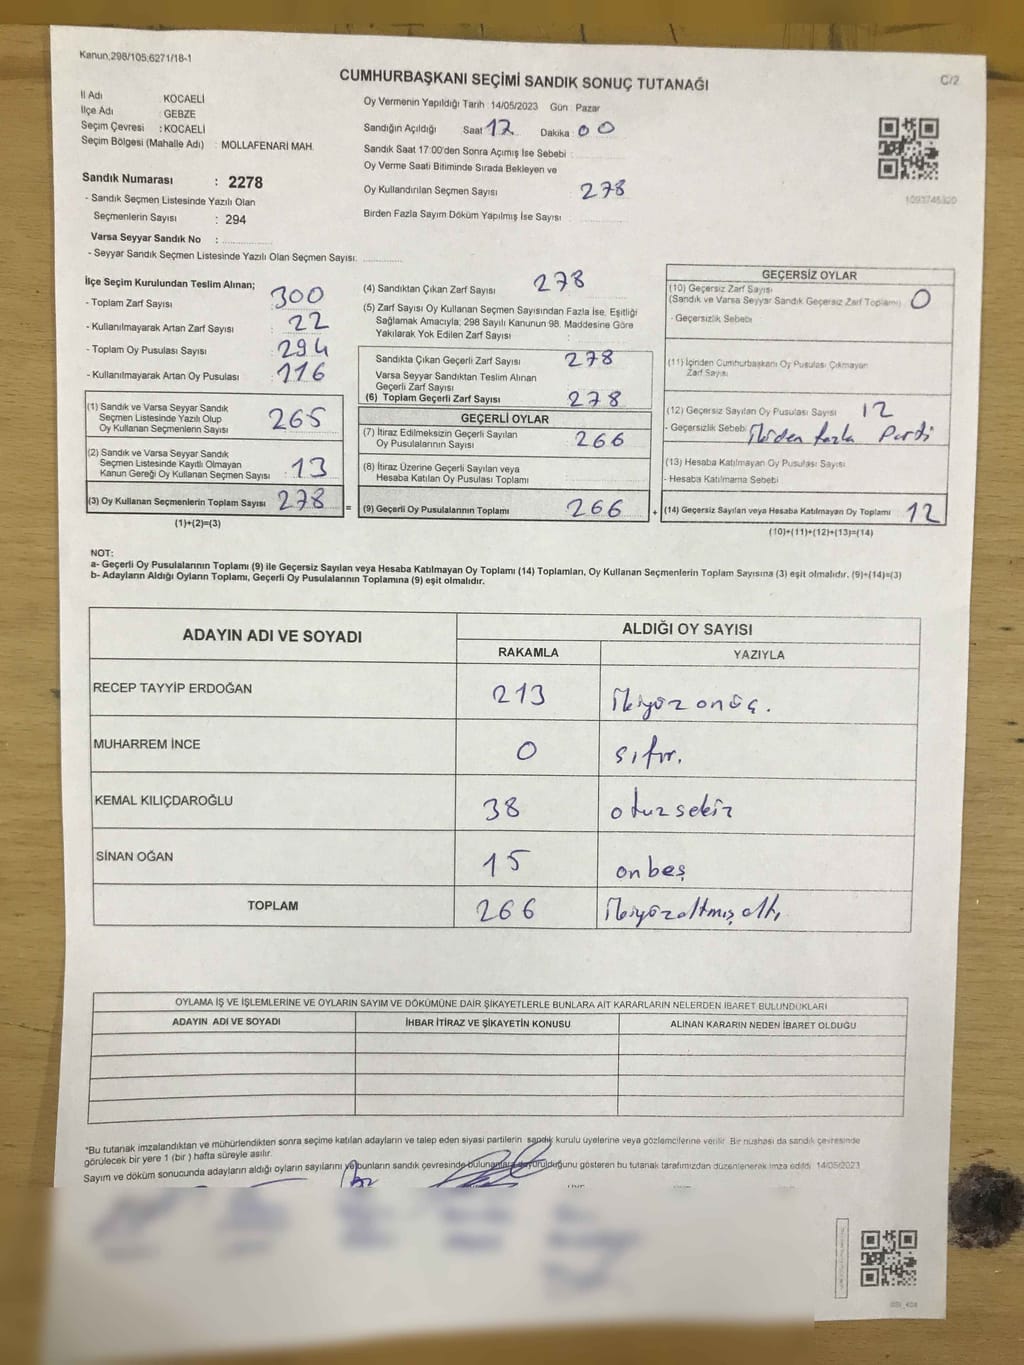 Kanun,298/105;6271/18-1
C/2
CUMHURBAŞKANI SEÇİMİ SANDIK SONUÇ TUTANAĞI
İl Adı KOCAELİ
İlçe Adı : GEBZE
Seçim Çevresi : KOCAELİ
Seçim Bölgesi (Mahalle Adı) : MOLLAFENARİ MAH.
Sandık Numarası : 2278
- Sandık Seçmen Listesinde Yazılı Olan
Seçmenlerin Sayısı : 294
Varsa Seyyar Sandık No :
- Seyyar Sandık Seçmen Listesinde Yazılı Olan Seçmen Sayısı:
Oy Vermenin Yapıldığı Tarih : 14/05/2023 Gün : Pazar
Sandığın Açıldığı Saat 17 Dakika : 00
Sandık Saat 17:00'den Sonra Açımış İse Sebebi :
Oy Verme Saati Bitiminde Sırada Bekleyen ve
Oy Kullandırılan Seçmen Sayısı 278
Birden Fazla Sayım Döküm Yapılmış İse Sayısı :
1093746320
İlçe Seçim Kurulundan Teslim Alınan;
- Toplam Zarf Sayısı 300
- Kullanılmayarak Artan Zarf Sayısı 22
- Toplam Oy Pusulası Sayısı 294
- Kullanılmayarak Artan Oy Pusulası 116
(1) Sandık ve Varsa Seyyar Sandık
Seçmen Listesinde Yazılı Olup
Oy Kullanan Seçmenlerin Sayısı 265
(2) Sandık ve Varsa Seyyar Sandık
Seçmen Listesinde Kayıtlı Olmayan
Kanun Gereği Oy Kullanan Seçmen Sayısı 13
(3) Oy Kullanan Seçmenlerin Toplam Sayısı 278 =
(1)+(2)=(3)
(4) Sandıktan Çıkan Zarf Sayısı 278
(5) Zarf Sayısı Oy Kullanan Seçmen Sayısından Fazla İse, Eşitliği
Sağlamak Amacıyla; 298 Sayılı Kanunun 98. Maddesine Göre
Yakılarak Yok Edilen Zarf Sayısı :
Sandıkta Çıkan Geçerli Zarf Sayısı 278
Varsa Seyyar Sandıktan Teslim Alınan
Geçerli Zarf Sayısı
(6) Toplam Geçerli Zarf Sayısı 278
GEÇERLİ OYLAR
(7) İtiraz Edilmeksizin Geçerli Sayılan
Oy Pusulalarının Sayısı 266
(8) İtiraz Üzerine Geçerli Sayılan veya
Hesaba Katılan Oy Pusulası Toplamı
(9) Geçerli Oy Pusulalarının Toplamı 266 +
GEÇERSİZ OYLAR
(10) Geçersiz Zarf Sayısı
(Sandık ve Varsa Seyyar Sandık Geçersiz Zarf Toplamı) 0
- Geçersizlik Sebebi
(11) İçinden Cumhurbaşkanı Oy Pusulası Çıkmayan
Zarf Sayısı
(12) Geçersiz Sayılan Oy Pusulası Sayısı 12
- Geçersizlik Sebebi fazla Parti
(13) Hesaba Katılmayan Oy Pusulası Sayısı
- Hesaba Katılmama Sebebi
(14) Geçersiz Sayılan veya Hesaba Katılmayan Oy Toplamı 12
(10)+(11)+(12)+(13)=(14)
NOT:
a- Geçerli Oy Pusulalarının Toplamı (9) ile Geçersiz Sayılan veya Hesaba Katılmayan Oy Toplamı (14) Toplamları, Oy Kullanan Seçmenlerin Toplam Sayısına (3) eşit olmalıdır. (9)+(14)=(3)
b- Adayların Aldığı Oyların Toplamı, Geçerli Oy Pusulalarının Toplamına (9) eşit olmalıdır.
ADAYIN ADI VE SOYADI ALDIĞI OY SAYISI
RAKAMLA YAZIYLA
RECEP TAYYİP ERDOĞAN 213 ikiyüz onüç.
MUHARREM İNCE 0 sıfır.
KEMAL KILIÇDAROĞLU 38 otuzsekiz
SİNAN OĞAN 15 onbeş
TOPLAM 266 ikiyüzaltmış altı
OYLAMA İŞ VE İŞLEMLERİNE VE OYLARIN SAYIM VE DÖKÜMÜNE DAİR ŞİKAYETLERLE BUNLARA AİT KARARLARIN NELERDEN İBARET BULUNDUKLARI
ADAYIN ADI VE SOYADI İHBAR İTİRAZ VE ŞİKAYETİN KONUSU ALINAN KARARIN NEDEN İBARET OLDUĞU
*Bu tutanak imzalandıktan ve mühürlendikten sonra seçime katılan adayların ve talep eden siyasi partilerin sandık kurulu üyelerine veya gözlemcilerine verilir. Bir nüshası da sandık çevresinde
görülecek bir yere 1 (bir) hafta süreyle asılır.
Sayım ve döküm sonucunda adayların aldığı oyların sayılarını ve bunların sandık çevresinde bulunanlara duyurulduğunu gösteren bu tutanak tarafımızdan düzenlenerek imza edildi. 14/05/2023